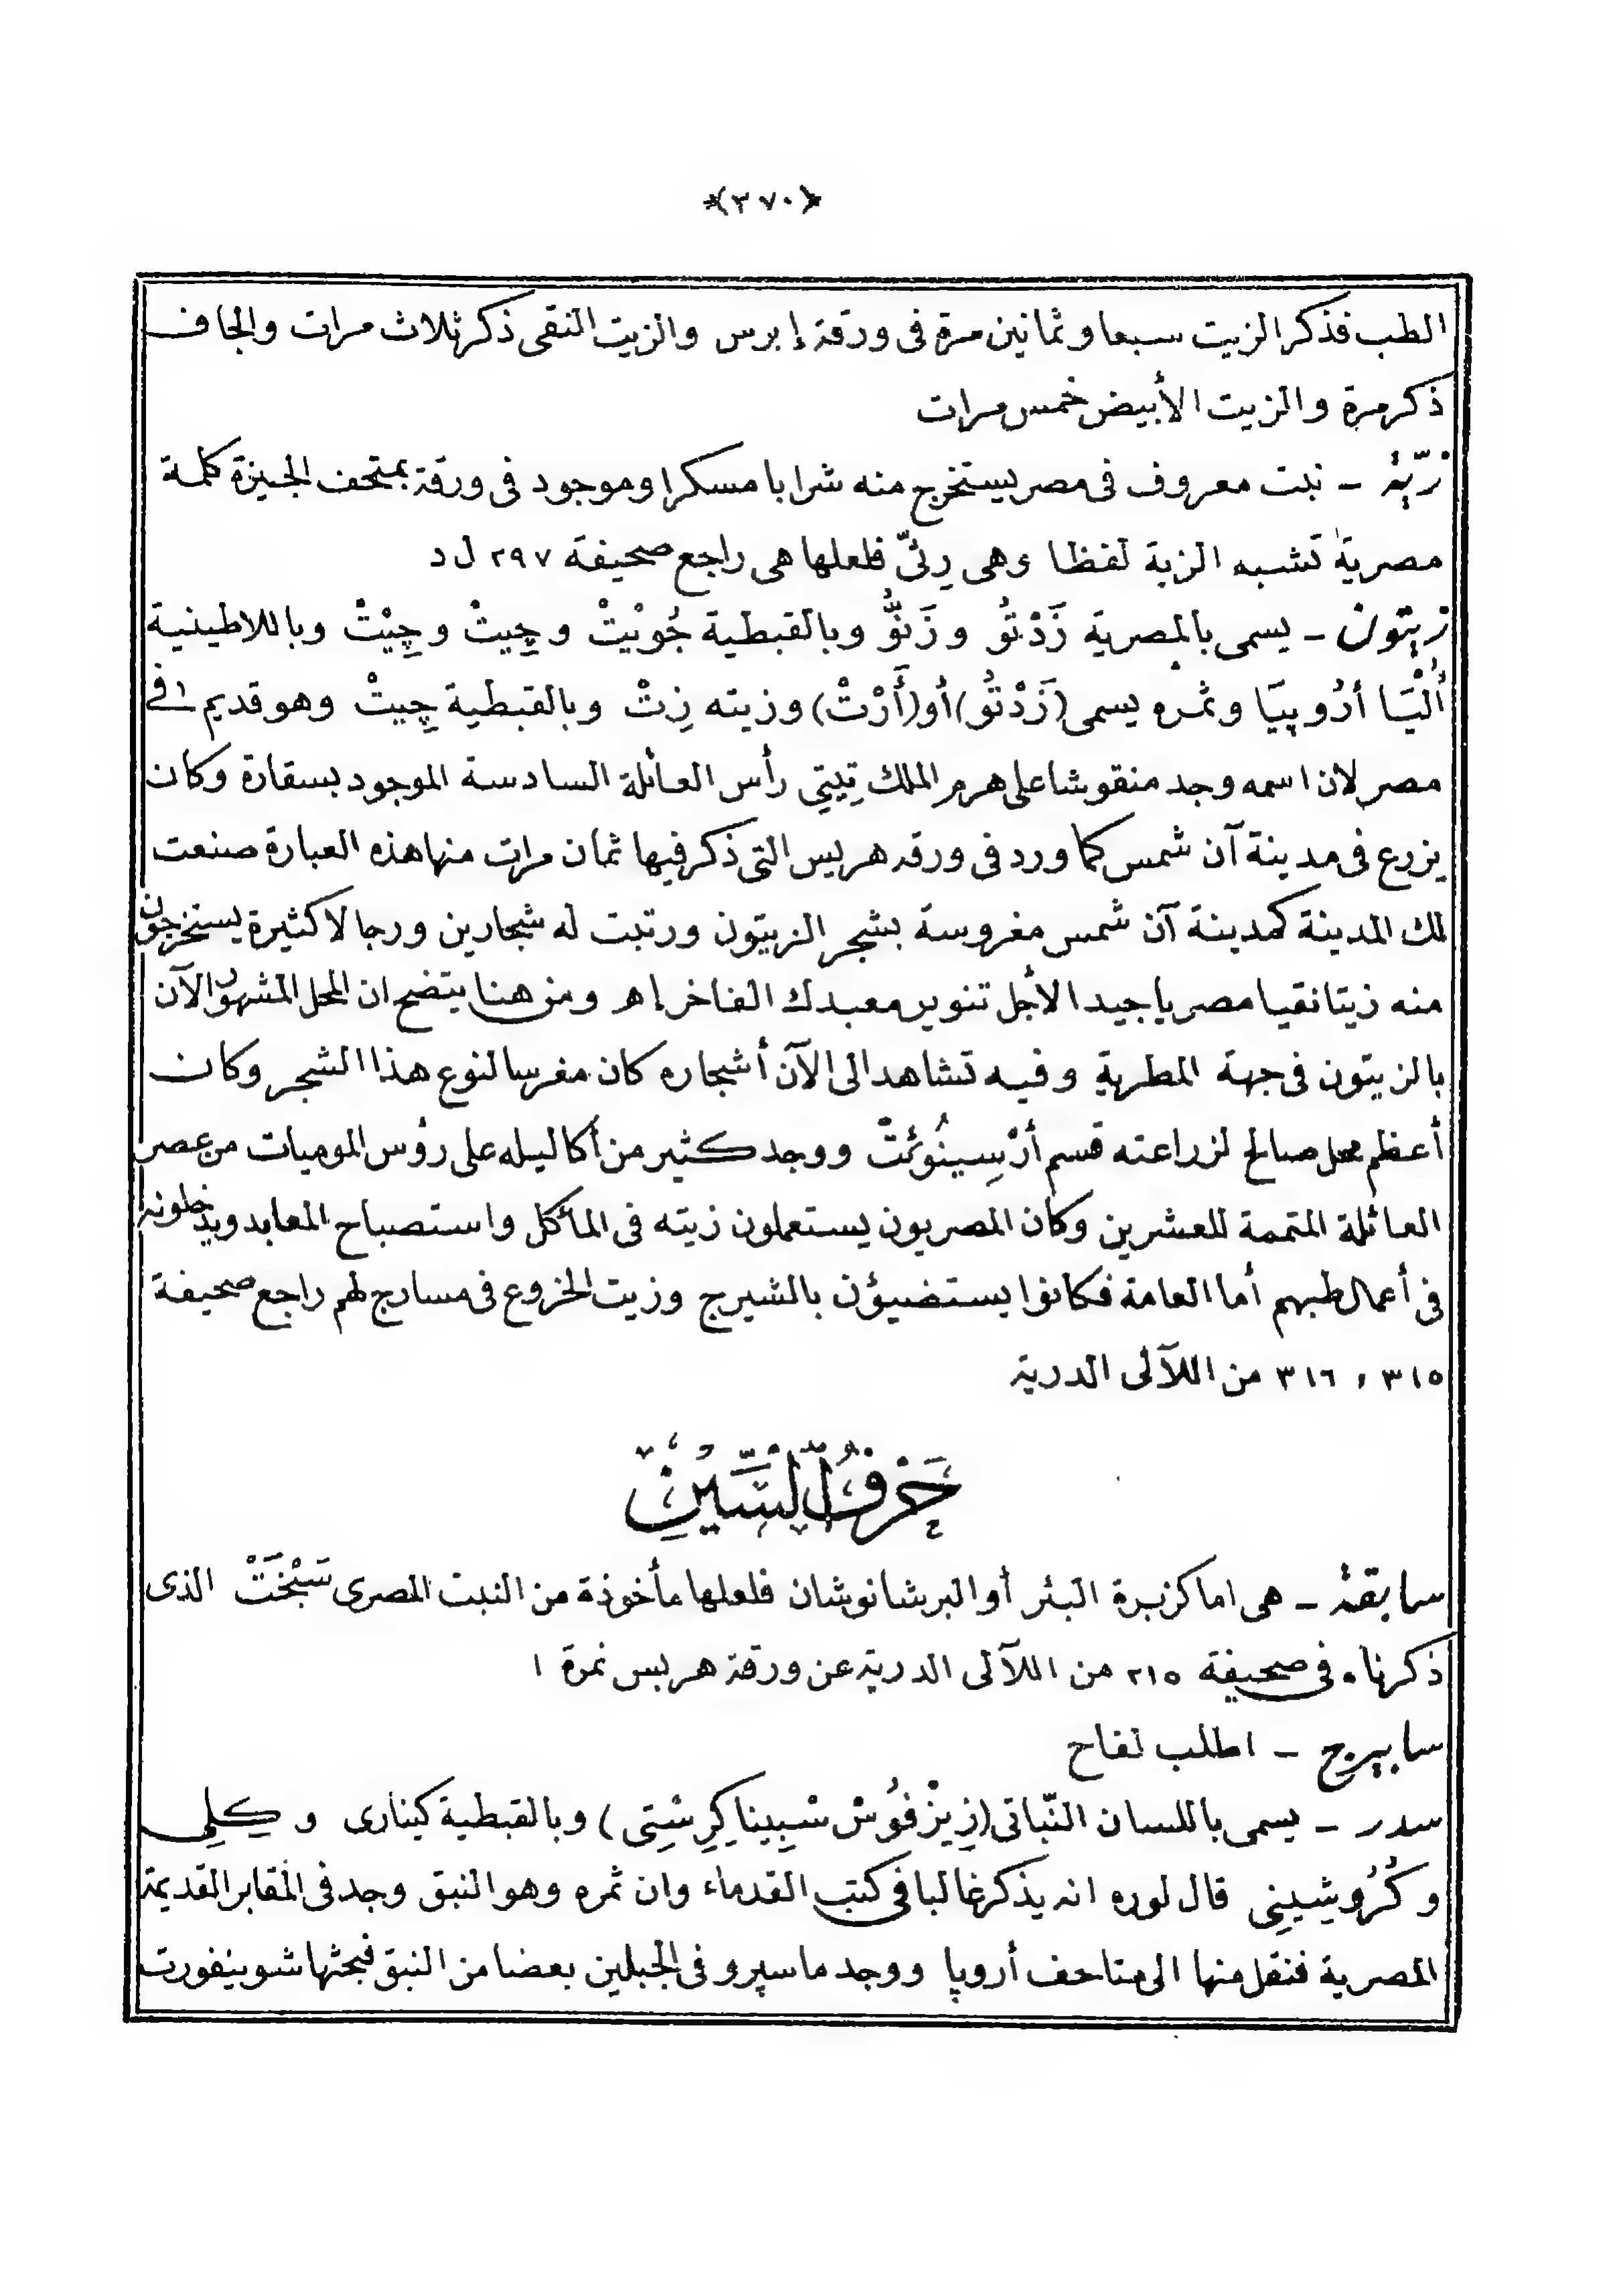 ﴿٣٧٠﴾
الطب فذكر الزيت سبعا وثمانين مرة فى ورقة إبرس والزيت النقى ذكر ثلاث مرات والجاف
ذكر مرة والزيت الأبيض خمس مرات
زبة – نبت معروف فى مصر يستخرج منه شرابا مسكرا وموجود فى ورقة بمتحف الجيزة كلمة
مصرية تشبه الزية لفظا وهى رِئىّ فلعلها هى راجع صحيفة ٢٩٧ ل د
زيتون – يسمى بالمصرية زَدْتُو و زَنُّو وبالقبطية جُوِيْتْ و چِيتْ و چِيْتْ وباللاطينية
أُلْيَا أرُوپيَا وثمره يسمى (زَدْتُو) أو (أَرْتْ) وزيته زِتْ وبالقبطية چِيتْ وهو قديم فى
مصر لان اسمه وجد منقوشا على هرم الملك تِيتِي رأس العائلة السادسة الموجود بسقارة وكان
يزرع فى مدينة آن شمس كما ورد فى ورقه هريس التى ذكر فيها ثمان مرات منها هذه العبارة صنعت
لك المدينة كمدينة آن شمس مغروسة بشجر الزيتون ورتبت له شجارين ورجالا كثيرة يستخرجون
منه زيتا نقيا مصريا جيدا لأجل تنوير معبدك الفاخر إهـ ومن هنا يتضح ان المحل المشهور الآن
بالزيتون فى جهة المطرية وفيه تشاهد الى الآن أشجاره كان مغرسا لنوع هذا الشجر وكان
أعظم محل صالح لزراعته قسم أرْسِينُوئتْ ووجد كثير من أكاليله على رؤس الموميات من عصر
العائلة المتممة للعشرين وكان المصريون يستعملون زيته فى المأكل واستصباح المعابد ويدخلونه
فى أعمال طبهم أما العامة فكانوا يستضيؤن بالشيرج وزيت الخروع فى مسارج لهم راجع صحيفة
٣١٥ ، ٣١٦ من اللآلى الدرية
حَرْفُ السِّيْنِ
سابقة – هى اما كزبرة البئر أو البرشانوشان فلعلها مأخوذة من النبت المصرى سَبْخَتْ الذى
ذكرناه فى صحيفة ٢١٥ من اللآلى الدرية عن ورقة هريس نمرة ١
سابيرج – اطلب لفاح
سدر – يسمى باللسان النّباتى (زِيزْفُوسْ سْبِينا كِرِسْتِى) وبالقبطية كينارى و كِلِى
و كُرُوشِينِى قال لوره انه يذكر غالبا فى كتب القدماء وان ثمره وهو النبق وجد فى المقابر القديمة
المصرية فنقل منها الى متاحف أروپا ووجد ماسپرو فى الجبلين بعضا من النبق فبحثها شوينفورت